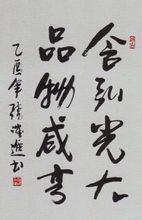 含弘光大
品物咸亨
乙酉年张海遊书